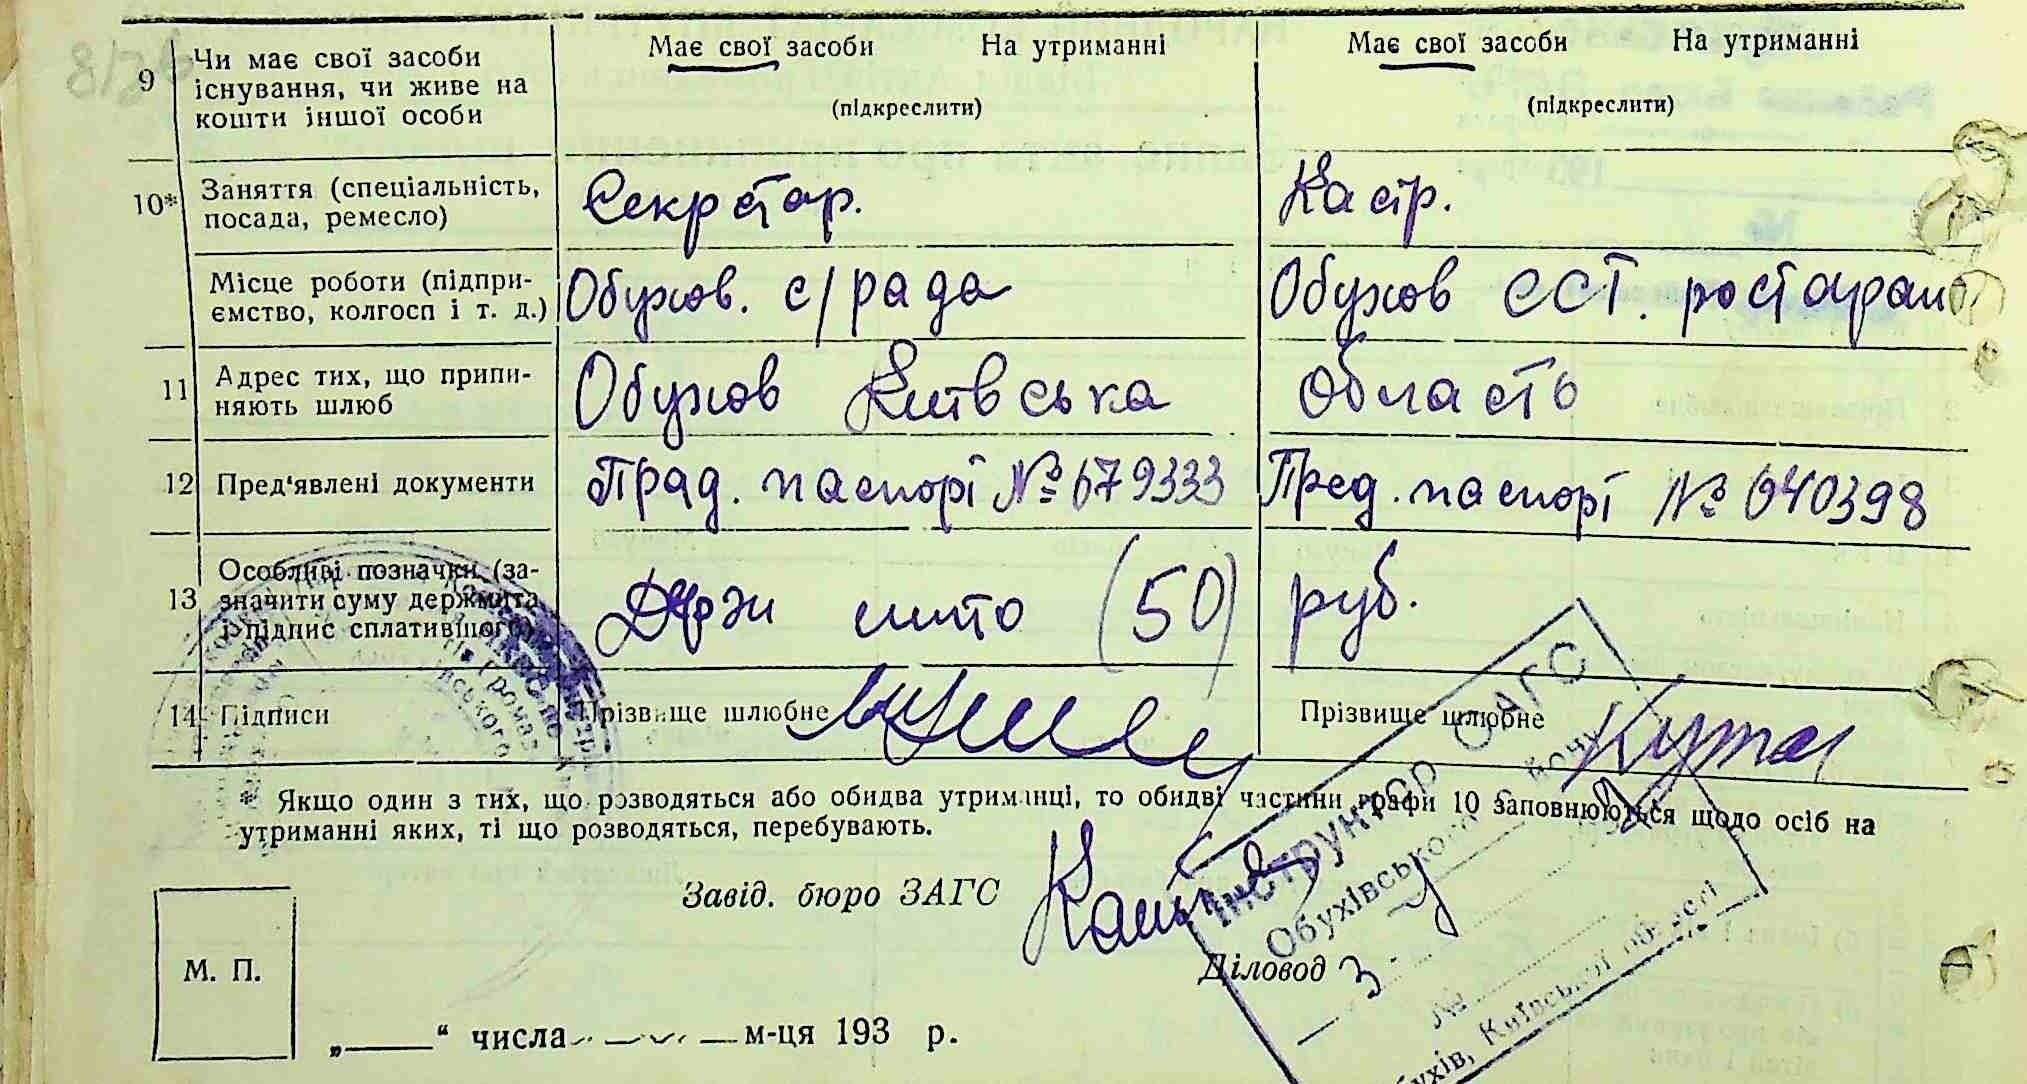 9 Чи має свої засоби існування, чи живе на кошти іншої особи
Має свої засоби На утриманні
(підкреслити)
Має свої засоби На утриманні
(підкреслити)
10* Заняття (спеціальність, посада, ремесло)
Секрётар.
Касір.
Місце роботи (підпри-
ємство, колгосп і т. д.)
Обухов. с/рада
Обухов ССТ. росторан
11 Адрес тих, що припи-
няють шлюб
Обухов Київська область
12 Пред'явлені документи
Пред. паспорт № 679333
Пред. паспорт № 040398
13 Особливі позначки (за-
значити суму держмита
і підпис сплатившого)
Держ мито (50) руб.
14 Підписи
Прізвище шлюбне
Прізвище шлюбне
* Якщо один з тих, що розводяться або обидва утриманці, то обидві частини графи 10 заповнюються щодо осіб на
утриманні яких, ті що розводяться, перебувають.
Завід. бюро ЗАГС
Інструктор ОАГС
Обухівського
Діловод
3
№
Обухів, Київської області
М. П.
„ “ числа м-ця 193 р.